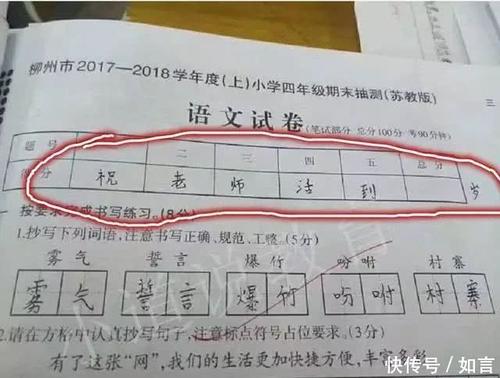 柳州市2017—2018学年度(上)小学四年级期末抽测(苏教版)
三
语文试卷(笔试部分 总分100分 考90分钟)
题号 二 三 四 五 总分
得分 祝 老 师 活 到 岁
按要求完成书写练习。(8分)
1.抄写下列词语,注意书写正确、规范、工整。(5分)
雾气 誓言 爆竹 吩咐 村寨
雾气 誓言 爆竹 吩咐 村寨
2.请在方格中认真抄写句子,注意标点符号占位要求。(3分)
有了这张“网”,我们的生活更加快捷方便,丰富多彩
小道说教育
快传号/如言